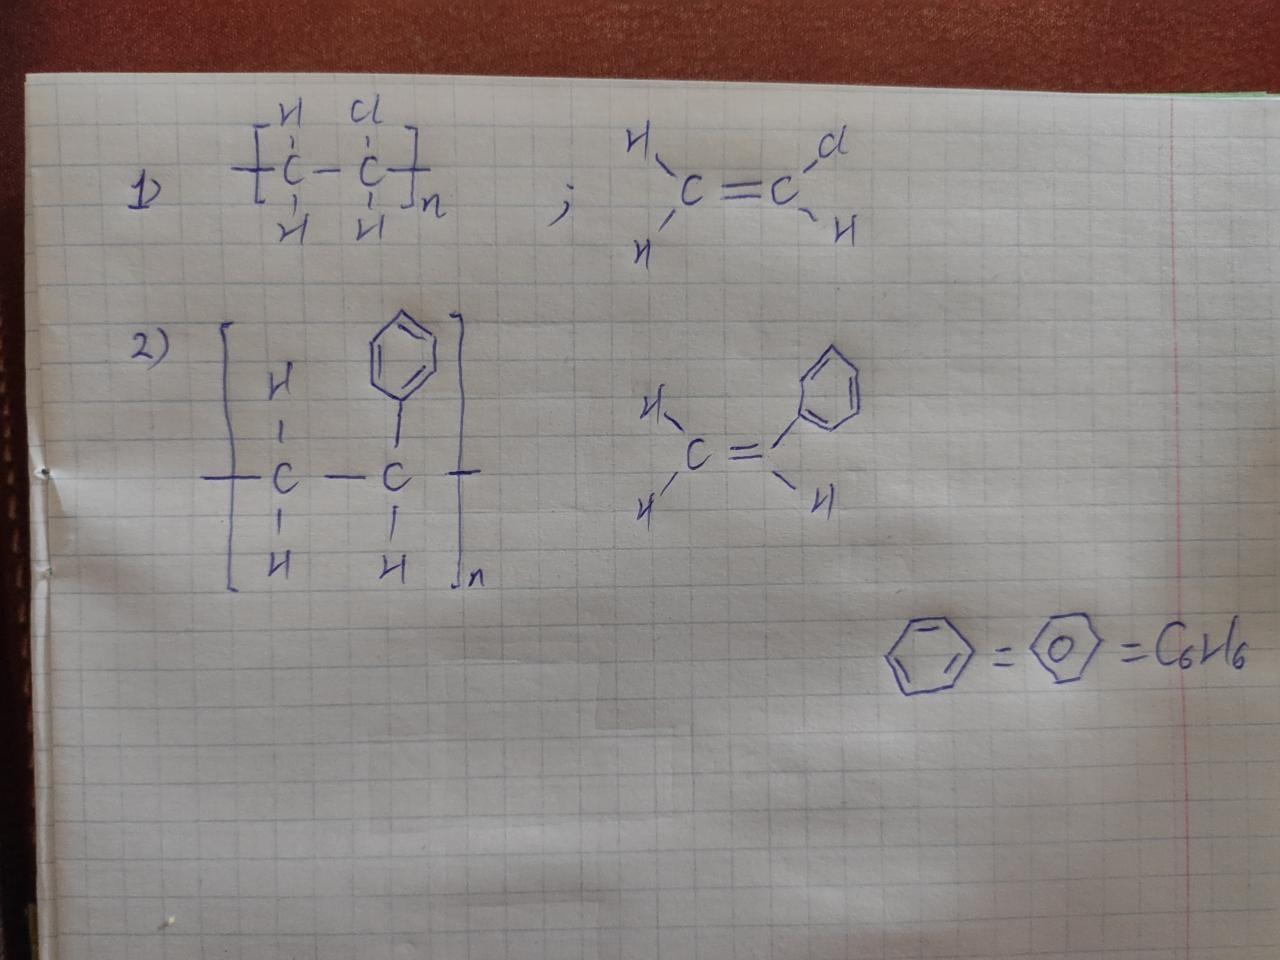 H Cl H Cl
1) [ C – C ]n ; C = C
H H H H
2) H H
[ C – C ]n C =
H H H H
= = C6H6